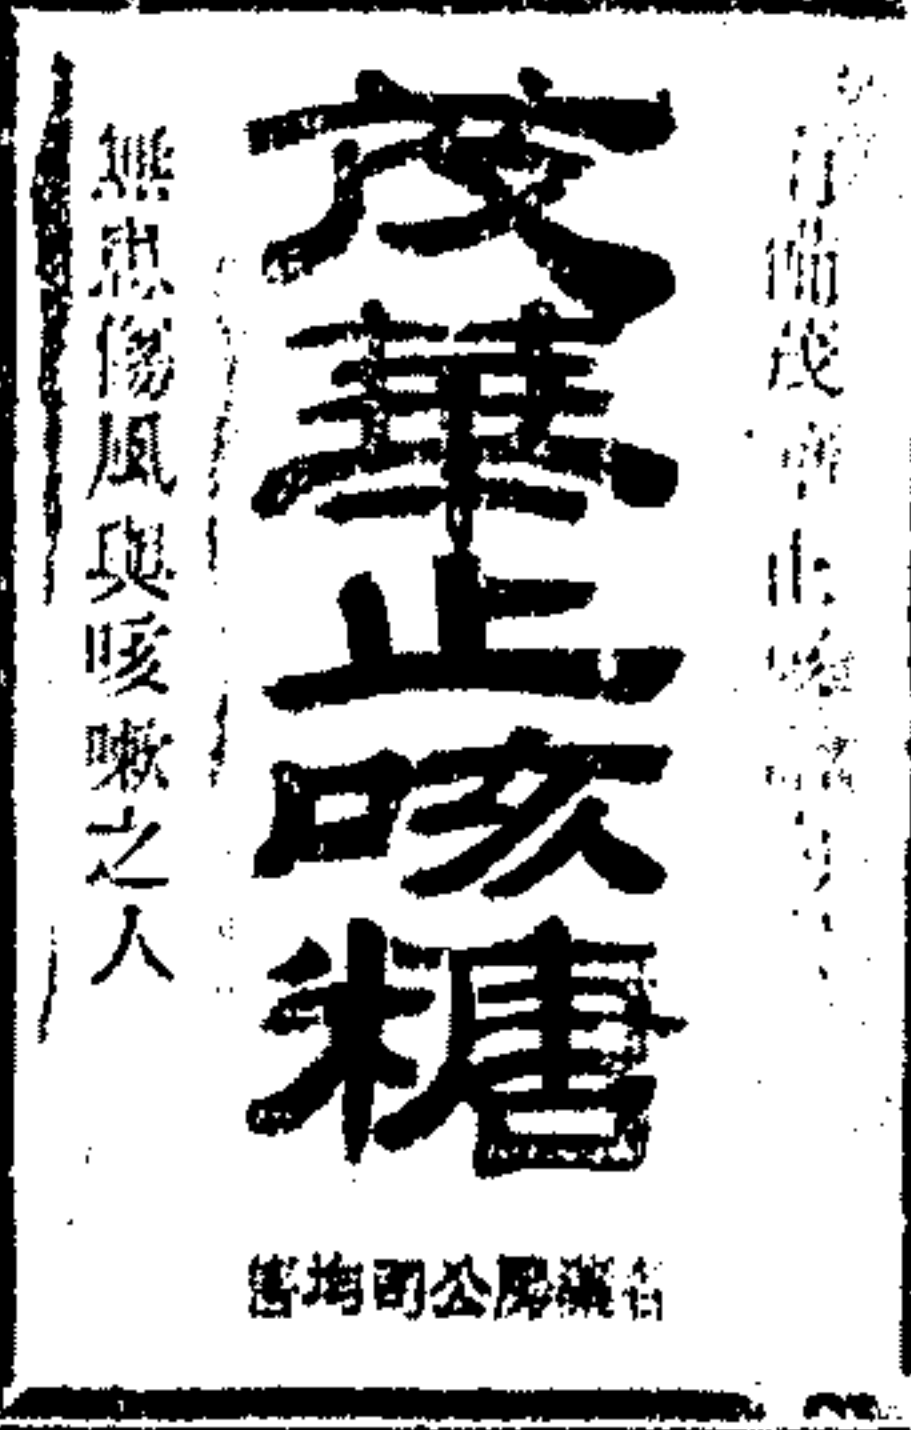 茂華止咳
茂華止咳糖
無患傷風與咳嗽之人
各藥房公司均售